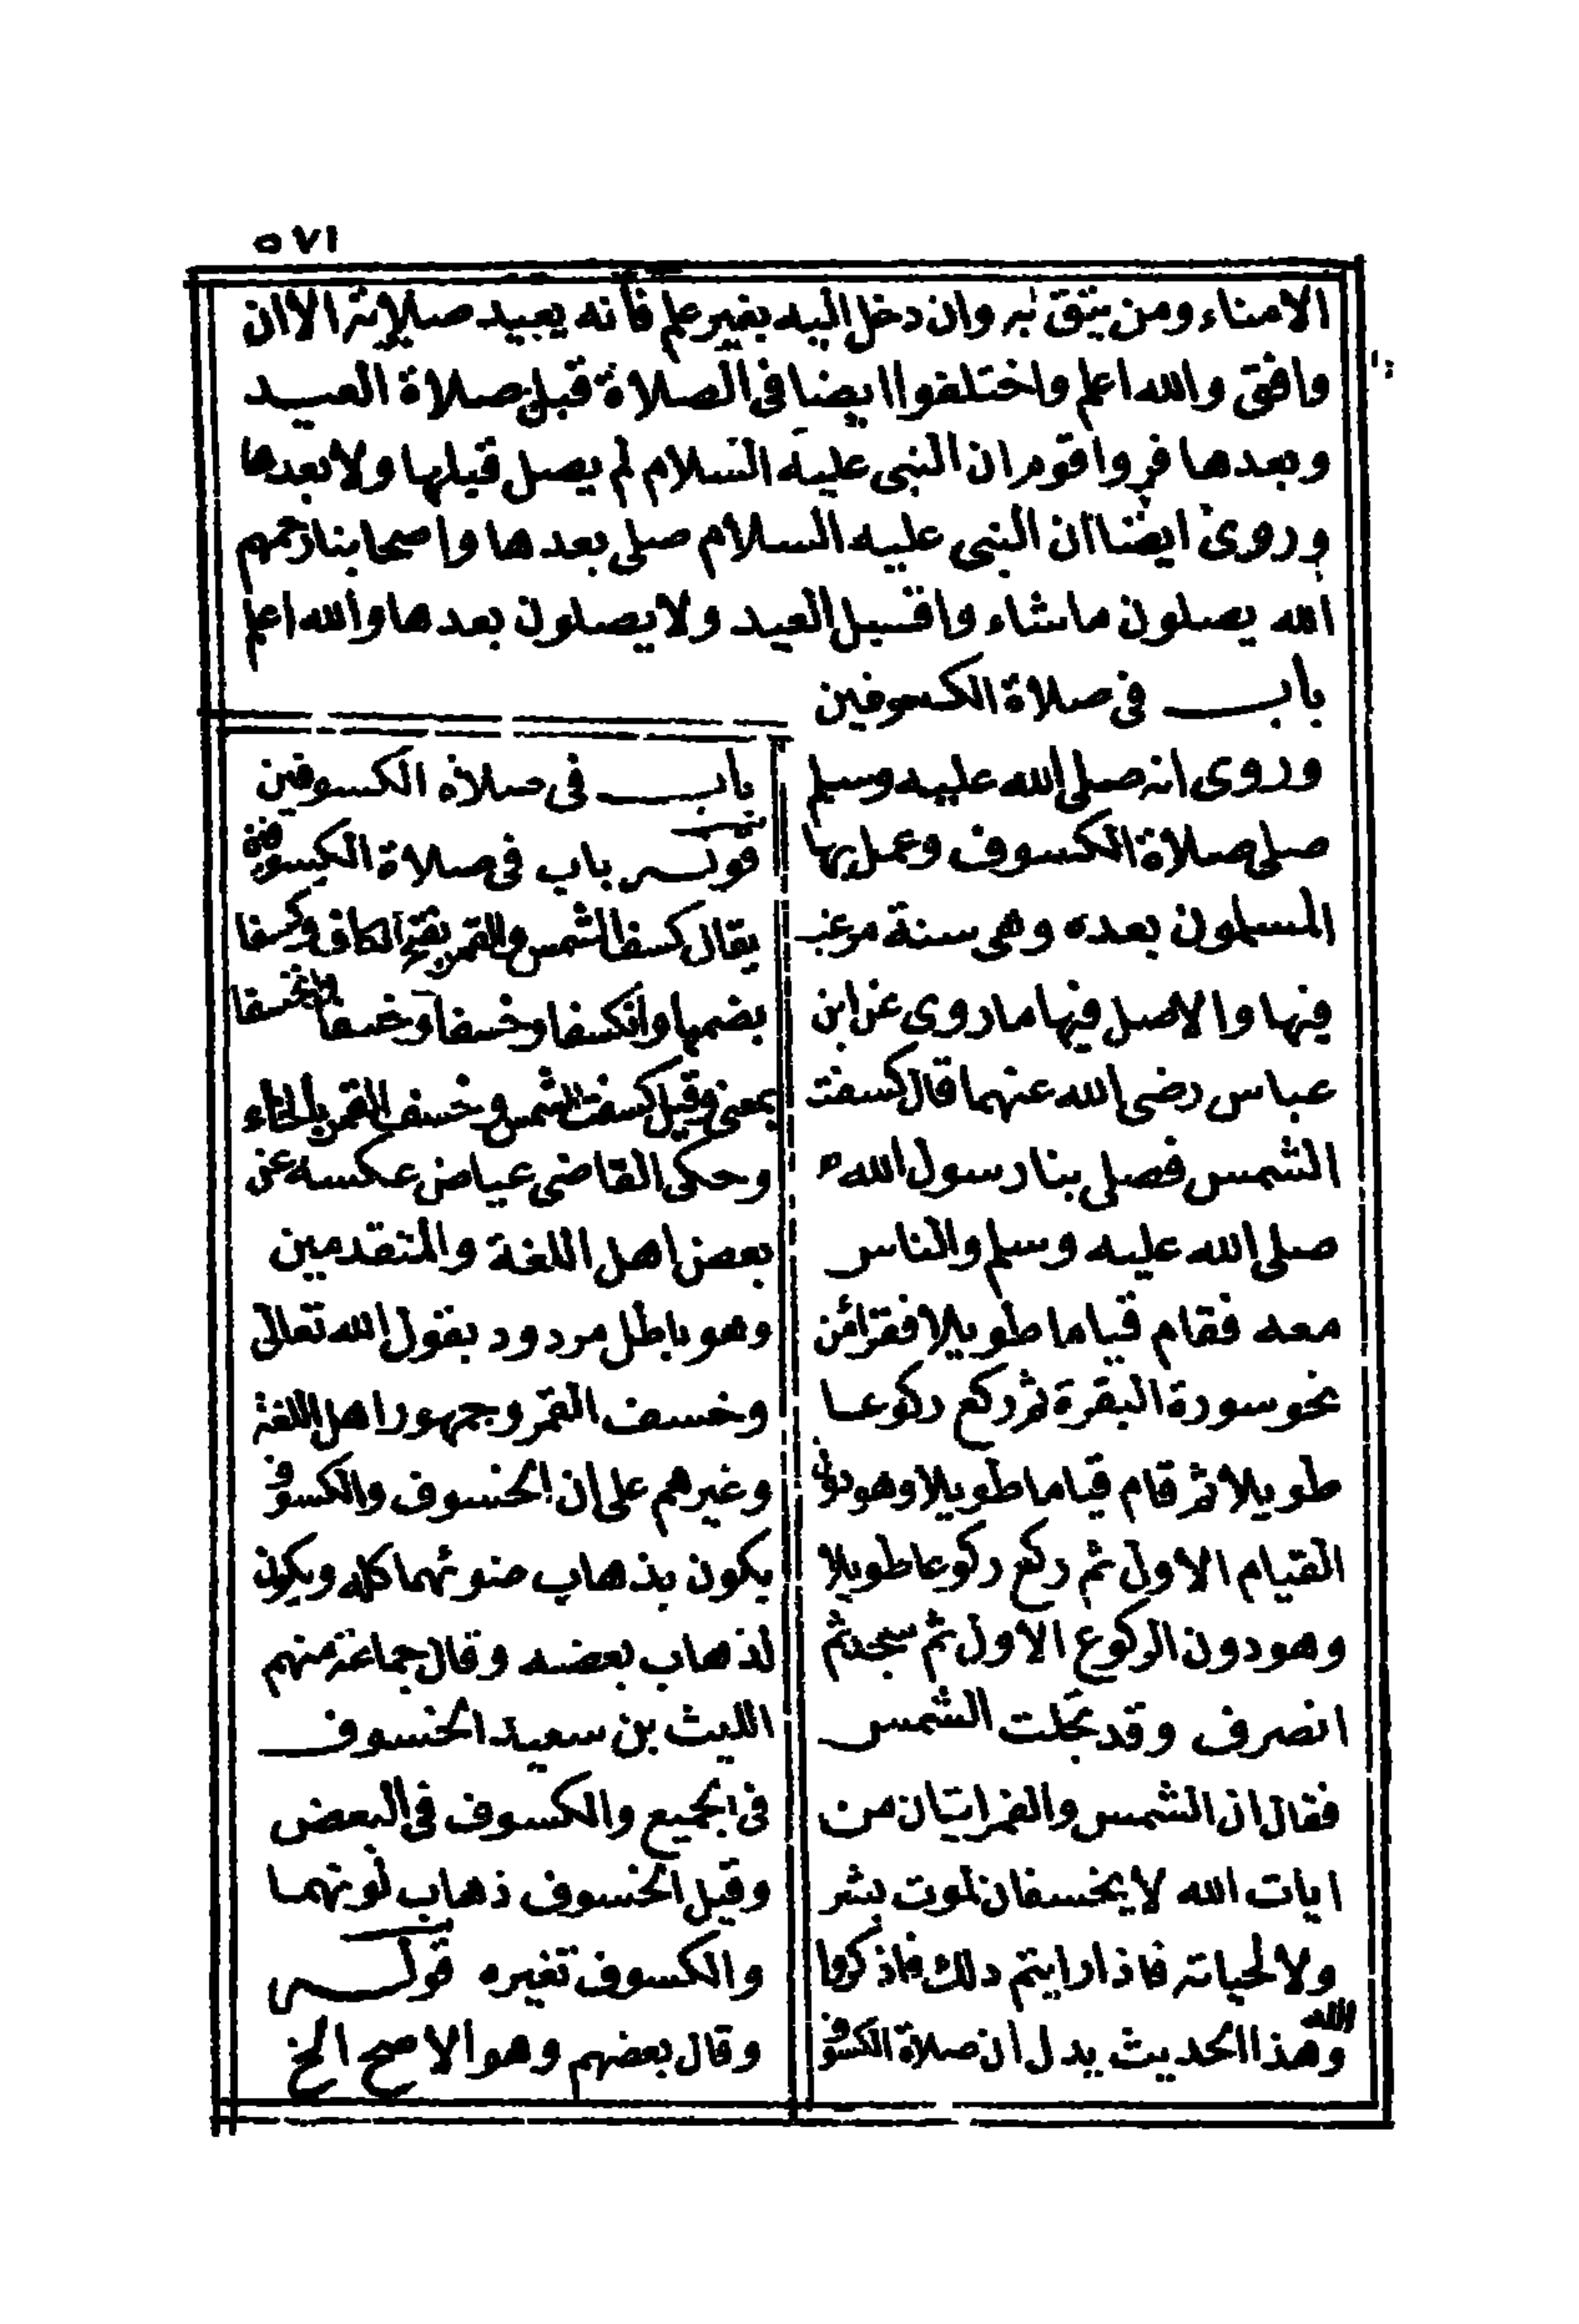 ٥٧١
الامناء ومن يثق به وان دخل اليه بغير علم فأنه يعيد صلاته الا ان
وافق والله اعلم واختلفوا ايضا فى الصلاة قبل صلاة العيـد
وبعدها فروا قوم ان النبى عليه السلام لم يصل قبلها ولا بعدها
وروى ايضا ان النبى عليه السلام صلى بعدها واصحابنا رحمهم
الله يصلون ماشاء وا قبل العيد ولا يصلون بعدها والله اعلم
باب فى صلاة الكسوفين
وروى انه صلى الله عليه وسلم
صلى صلاة الكسوف وعمل بها
المسلمون بعده وهى سنة مرغب
فيها والاصل فيها ما روى عن ابن
عباس رضى الله عنهما قال كسفت
الشمس فصلى بنا رسول الله
صلى الله عليه وسلم والناس
معه فقام قياما طويلا فقرا من
نحو سورة البقرة ثم ركع ركوعا
طويلا ثم قام قياما طويلا وهو دون
القيام الاول ثم ركع ركوعا طويلا
وهو دون الركوع الاول ثم سجد ثم
انصرف وقد تجلت الشمس
فقال ان الشمس والقمر ايتان من
ايات الله لا يخسفان لموت بشر
ولا لحياته فاذا رايتم ذلك فاذكروا
الله
وهذا الحديث يدل ان صلاة الكسوف
باب فى صلاة الكسوفين
قوله باب فى صلاة الكسوفين
يقال كسفا الشمس والقمر بفتح الكاف وكسفا
بضمها وانكسفا وخسفا وخسفا وانخسفا
بمعنى وقيل كسفت الشمس وخسف القمر بالخاء
وحكى القاضى عياض عكسه عن
بعض اهل اللغة والمتقدمين
وهو باطل مردود بقول الله تعالى
وخسف القمر وجمهور اهل اللغة
وغيرهم على ان الخسوف والكسوف
يكون بذهاب ضوئهما كله ويكون
لذهاب بعضه وقال جماعة منهم
الليث بن سعيد الخسوف
فى الجميع والكسوف فى البعض
وقيل الخسوف ذهاب لونهما
والكسوف تغيره قوله
وقال بعضهم وهو الاصح الخ